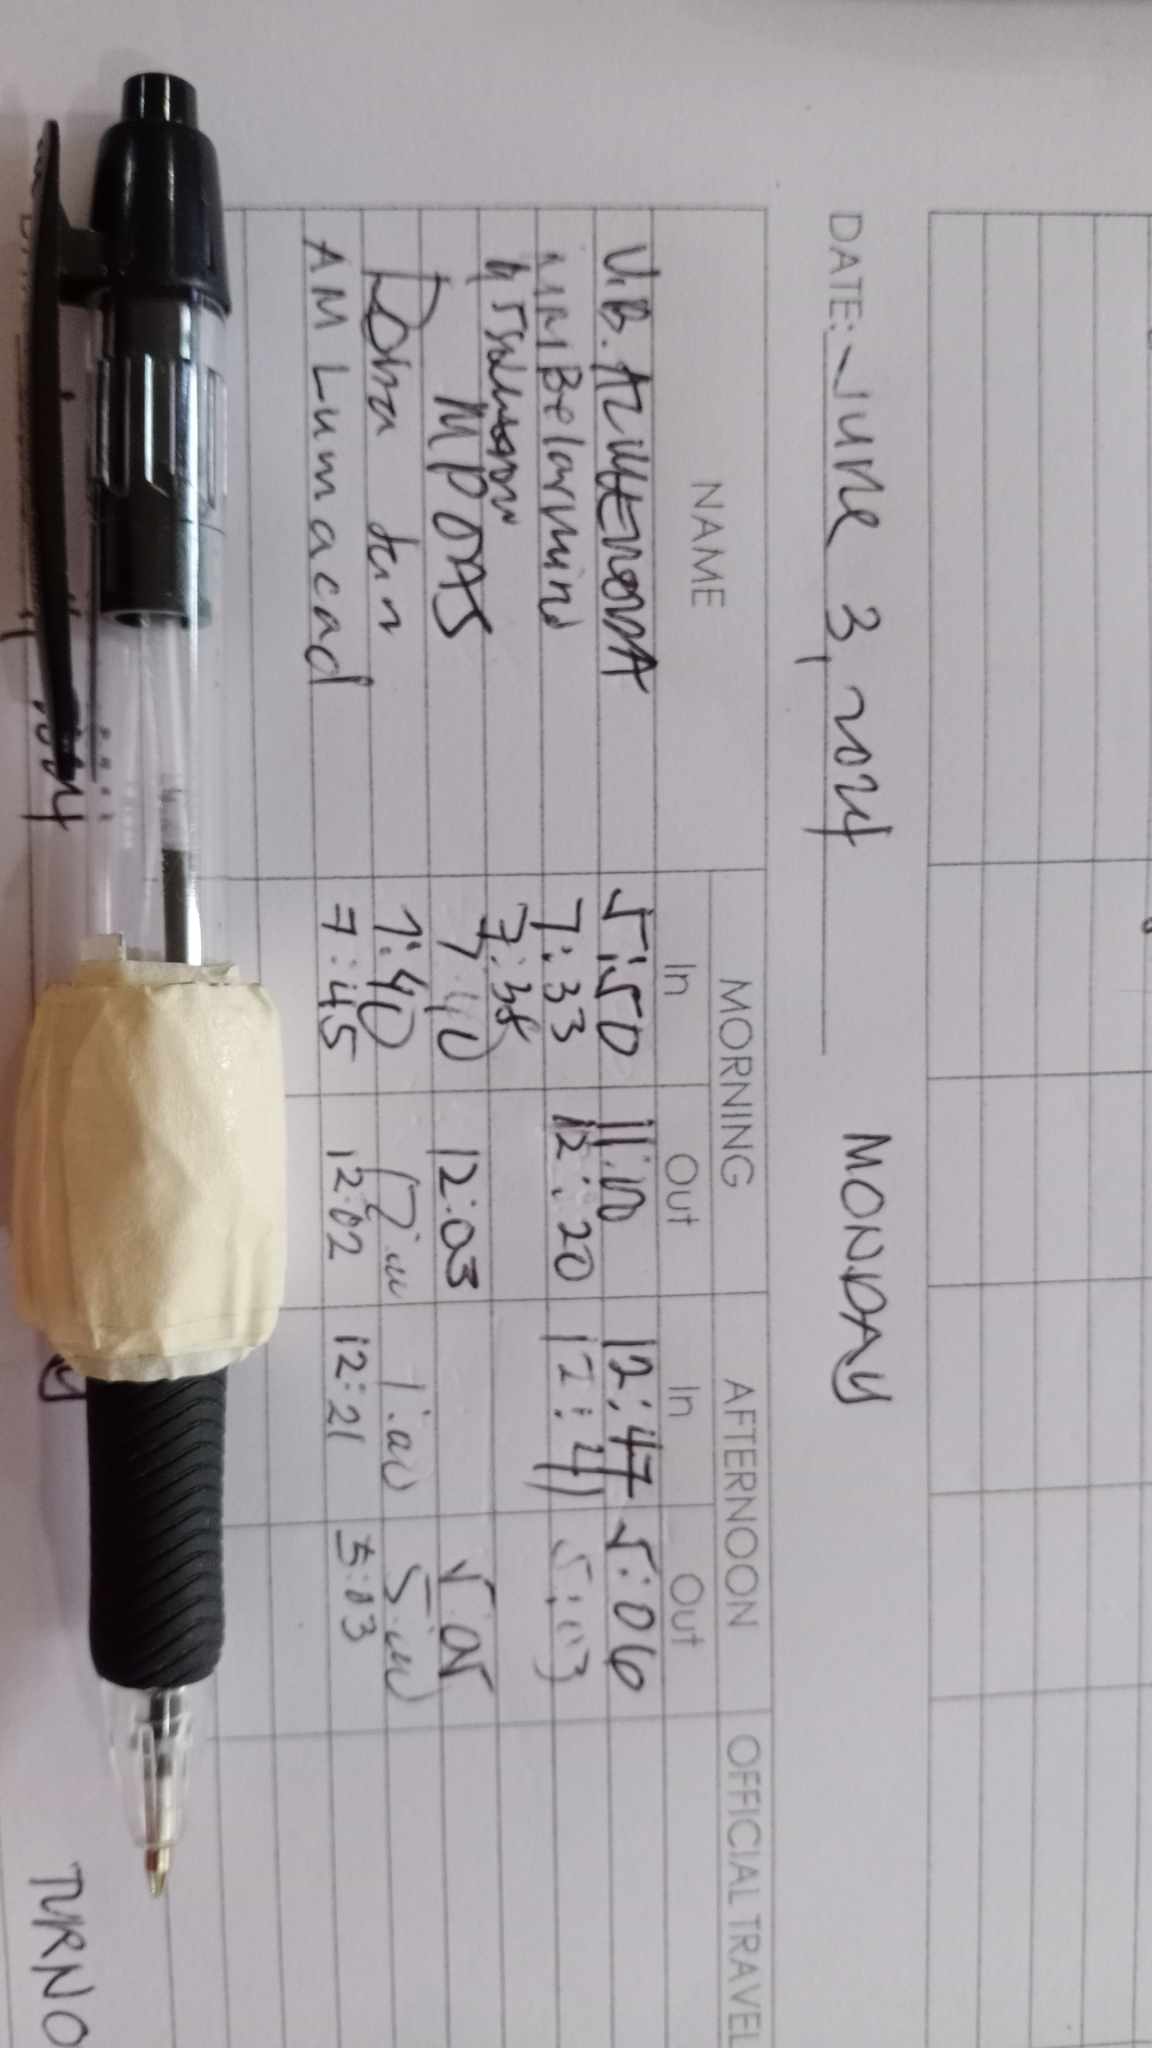 DATE: June 3, 2024 MONDAY
NAME MORNING AFTERNOON OFFICIAL TRAVEL
In Out In Out
V.B. 5:50 11:10 12:47 5:06
MMBelarmino 7:33 12:20 12:41 5:03
7:38
MPDAS 7:40 12:03 5:05
Dona 7:40 12:00 1:00 5:00
AM Lumacad 7:45 12:02 12:21 5:03
TURNO